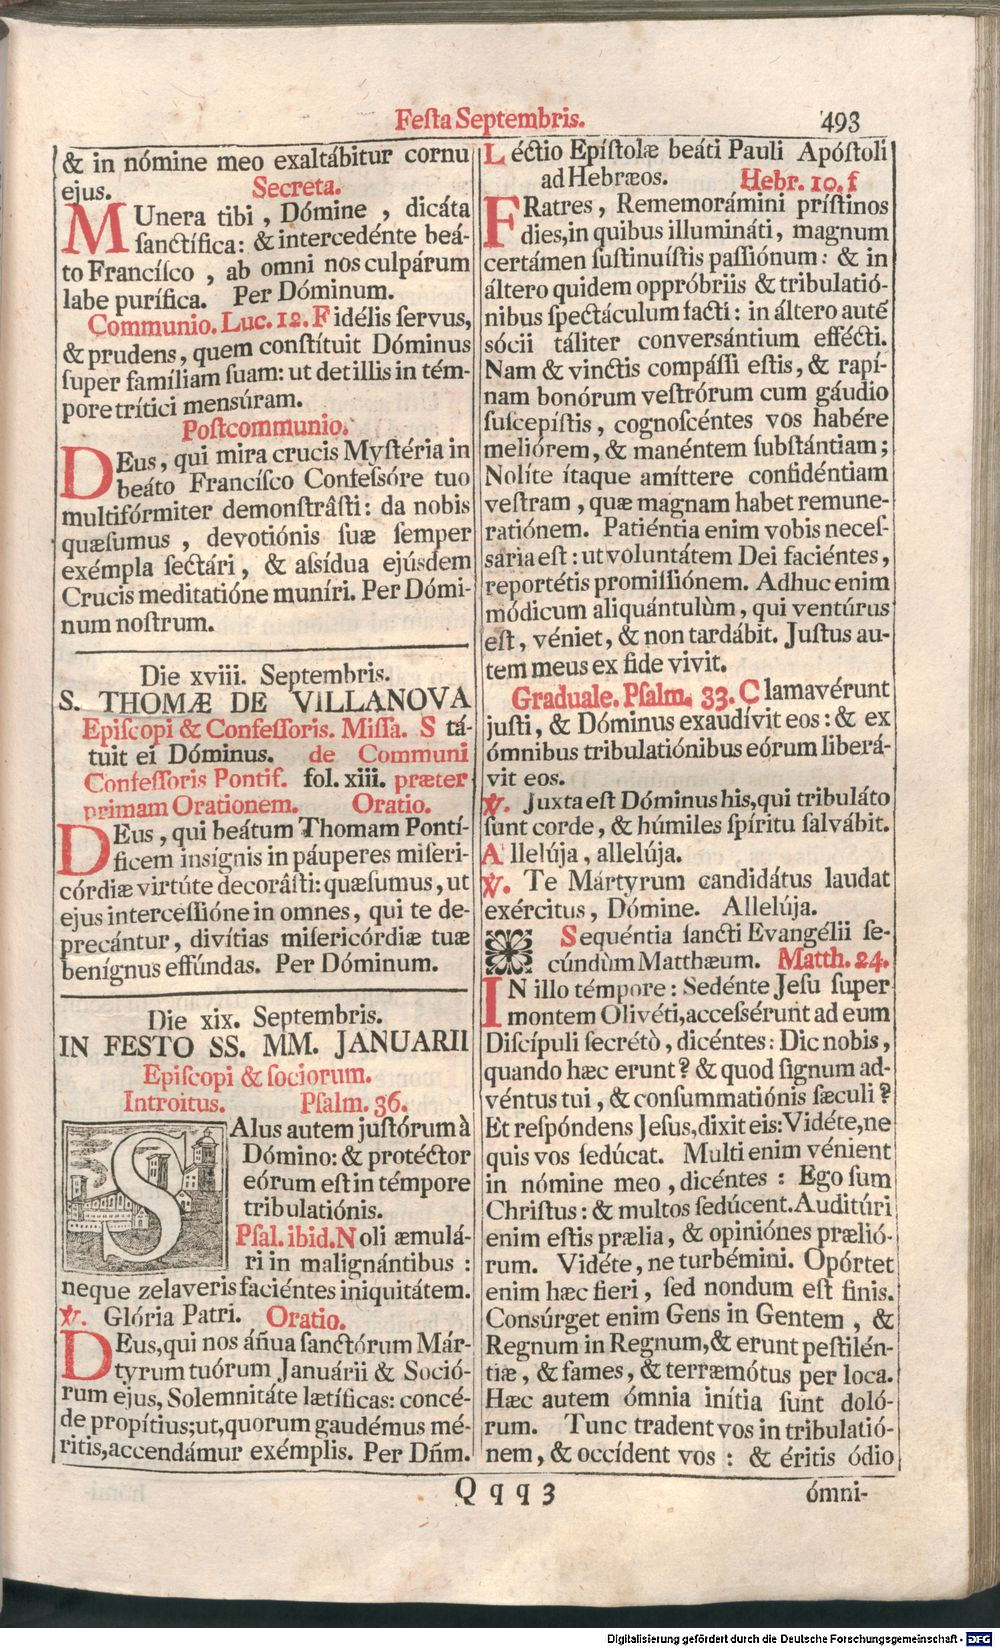 Feſta Septembris. 493
& in nómine meo exaltábitur cornu
ejus. Secreta.
MUnera tibi, Dómine, dicáta
ſanctífica: & intercedénte beá-
to Francíſco, ab omni nos culpárum
labe purífica. Per Dóminum.
Communio. Luc. 12. Fidélis ſervus,
& prudens, quem conſtítuit Dóminus
ſuper famíliam ſuam: ut det illis in tém-
pore trítici mensúram.
Poſtcommunio.
DEus, qui mira crucis Myſtéria in
beáto Francíſco Confeſsóre tuo
multifórmiter demonſtrâſti: da nobis
quæſumus, devotiónis ſuæ ſemper
exémpla ſectári, & aſsídua ejúsdem
Crucis meditatióne muníri. Per Dómi-
num noſtrum.
Die xviii. Septembris.
S. THOMÆ DE VILLANOVA
Epiſcopi & Confeſſoris. Miſſa. Stá-
tuit ei Dóminus. de Communi
Confeſſoris Pontif. fol. xiii. præter
primam Orationem. Oratio.
DEus, qui beátum Thomam Pontí-
ficem insígnis in páuperes miſeri-
córdiæ virtúte decorâſti: quæſumus, ut
ejus interceſſióne in omnes, qui te de-
precántur, divítias miſericórdiæ tuæ
benígnus effúndas. Per Dóminum.
Die xix. Septembris.
IN FESTO SS. MM. JANUARII
Epiſcopi & ſociorum.
Introitus. Pſalm. 36.
SAlus autem juſtórum à
Dómino: & protéctor
eórum eſt in témpore
tribulatiónis.
Pſal. ibid. Noli æmulá-
ri in malignántibus:
neque zelaveris faciéntes iniquitátem.
℣. Glória Patri. Oratio.
DEus, qui nos áñua ſanctórum Már-
tyrum tuórum Januárii & Soció-
rum ejus, Solemnitáte lætíficas: concé-
de propítius; ut, quorum gaudémus mé-
ritis, accendámur exémplis. Per Dñm.
Léctio Epíſtolæ beáti Pauli Apóſtoli
ad Hebræos. Hebr. 10. f
FRatres, Rememorámini príſtinos
dies, in quibus illumináti, magnum
certámen ſuſtinuíſtis paſſiónum: & in
áltero quidem oppróbriis & tribulatió-
nibus ſpectáculum facti: in áltero autē
sócii táliter converſántium effécti.
Nam & vinctis compáſſi eſtis, & rapí-
nam bonórum veſtrórum cum gáudio
ſuſcepíſtis, cognoſcéntes vos habére
meliórem, & manéntem ſubſtántiam;
Nolíte ítaque amíttere confidéntiam
veſtram, quæ magnam habet remune-
ratiónem. Patiéntia enim vobis neceſ-
sária eſt: ut voluntátem Dei faciéntes,
reportétis promiſſiónem. Adhuc enim
módicum aliquántulùm, qui ventúrus
eſt, véniet, & non tardábit. Juſtus au-
tem meus ex fide vivit.
Graduale. Pſalm. 33. Clamavérunt
juſti, & Dóminus exaudívit eos: & ex
ómnibus tribulatiónibus eórum liberá-
vit eos.
℣. Juxta eſt Dóminus his, qui tribuláto
ſunt corde, & húmiles ſpíritu ſalvábit.
Allelúja, allelúja.
℣. Te Mártyrum candidátus laudat
exércitus, Dómine. Allelúja.
Sequéntia ſancti Evangélii ſe-
cúndùm Matthæum. Matth. 24.
IN illo témpore: Sedénte Jeſu ſuper
montem Olivéti, acceſsérunt ad eum
Diſcípuli ſecrétò, dicéntes: Dic nobis,
quando hæc erunt? & quod ſignum ad-
véntus tui, & conſummatiónis ſæculi?
Et reſpóndens Jeſus, dixit eis: Vidéte, ne
quis vos ſedúcat. Multi enim vénient
in nómine meo, dicéntes: Ego ſum
Chriſtus: & multos ſedúcent. Auditúri
enim eſtis prælia, & opiniónes prælió-
rum. Vidéte, ne turbémini. Opórtet
enim hæc fieri, ſed nondum eſt finis.
Consúrget enim Gens in Gentem, &
Regnum in Regnum, & erunt peſtilén-
tiæ, & fames, & terræmótus per loca.
Hæc autem ómnia inítia ſunt doló-
rum. Tunc tradent vos in tribulatió-
nem, & occídent vos: & éritis ódio
Qqq 3 ómni-
Digitalisierung gefördert durch die Deutsche Forschungsgemeinschaft - DFG